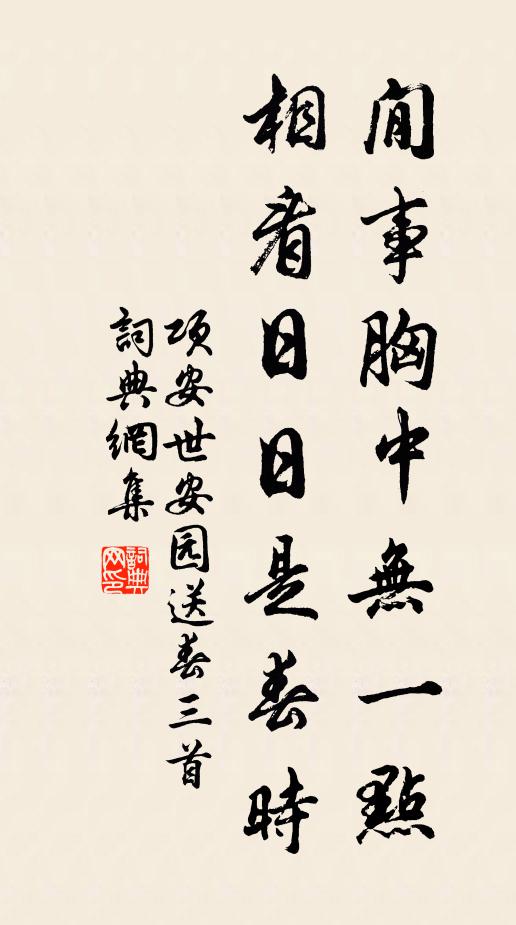 閒事胸中無一點
相看日日是春時
项安世安园送春三首
詞典網集
詞典网印